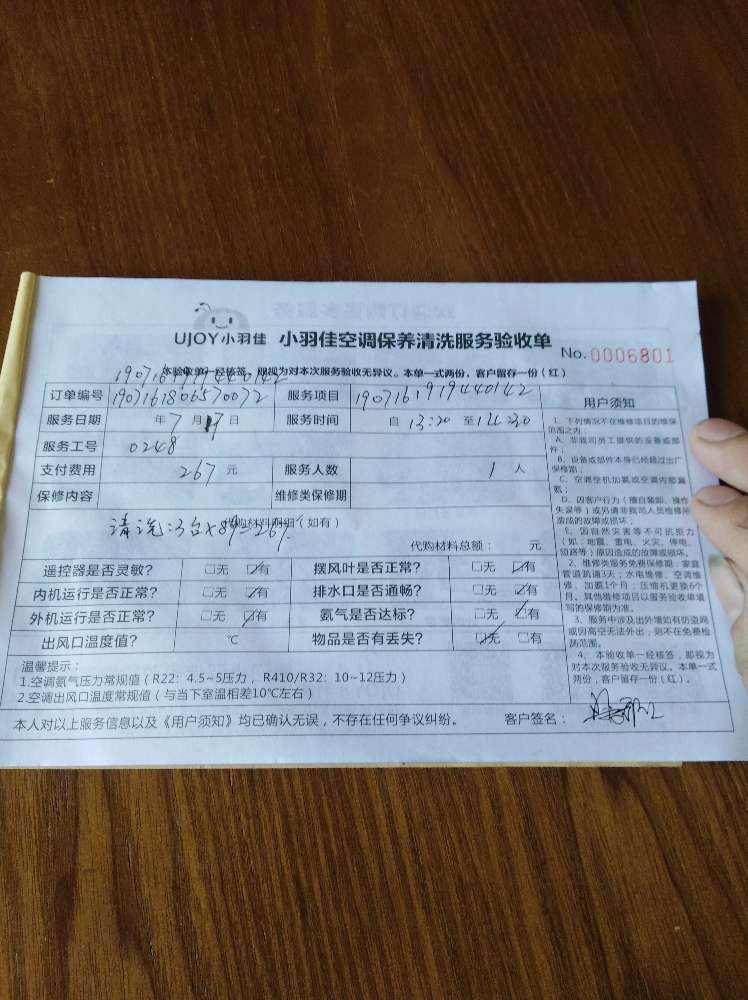 UJOY小羽佳 小羽佳空调保养清洗服务验收单
No.0006801
本验收单一经核签，即视为对本次服务验收无异议。本单一式两份，客户留存一份(红)
1907161919440142
订单编号 1907161806570072 服务项目 1907161919440142
服务日期 年7月17日 服务时间 自13:20至14:30
服务工号 0248
支付费用 267元 服务人数 1人
保修内容 维修类保修期
代购材料明细(如有)
清洗:3台×89=267.
代购材料总额： 元
遥控器是否灵敏？ □无 ☑有 摆风叶是否正常？ □无 ☑有
内机运行是否正常？ □无 ☑有 排水口是否通畅？ □无 ☑有
外机运行是否正常？ □无 ☑有 氨气是否达标？ □无 ☑有
出风口温度值？ ℃ 物品是否有丢失？ ☑无 □有
温馨提示：
1.空调氨气压力常规值（R22：4.5~5压力，R410/R32：10~12压力）
2.空调出风口温度常规值（与当下室温相差10℃左右）
本人对以上服务信息以及《用户须知》均已确认无误，不存在任何争议纠纷。 客户签名：
用户须知
1、下列情况不在维修项目的维保
范围之内：
A、非我司员工提供的设备或部
件；
B、设备或部件本身已经超过出厂
保修期；
C、空调空机加氨或空调内部漏
氨；
D、因客户行为（擅自装卸、操作
失误等）或另请非我司人员检修所
造成的故障或损坏；
E、因自然灾害等不可抗拒力
（如：地震、雷电、火灾、停电、
短路等）原因造成的故障或损坏。
2、维修类服务免费保修期：家庭
管道疏通3天；水电维修、空调维
修、加氨1个月；压缩机更换6个
月。其他维修项目以服务验收单填
写的保修期为准。
3、服务中涉及出外墙如有防盗网
或因高空无法外出，则不在免费检
测范围。
4、本验收单一经核签，即视为
对本次服务验收无异议。本单一式
两份，客户留存一份(红)。